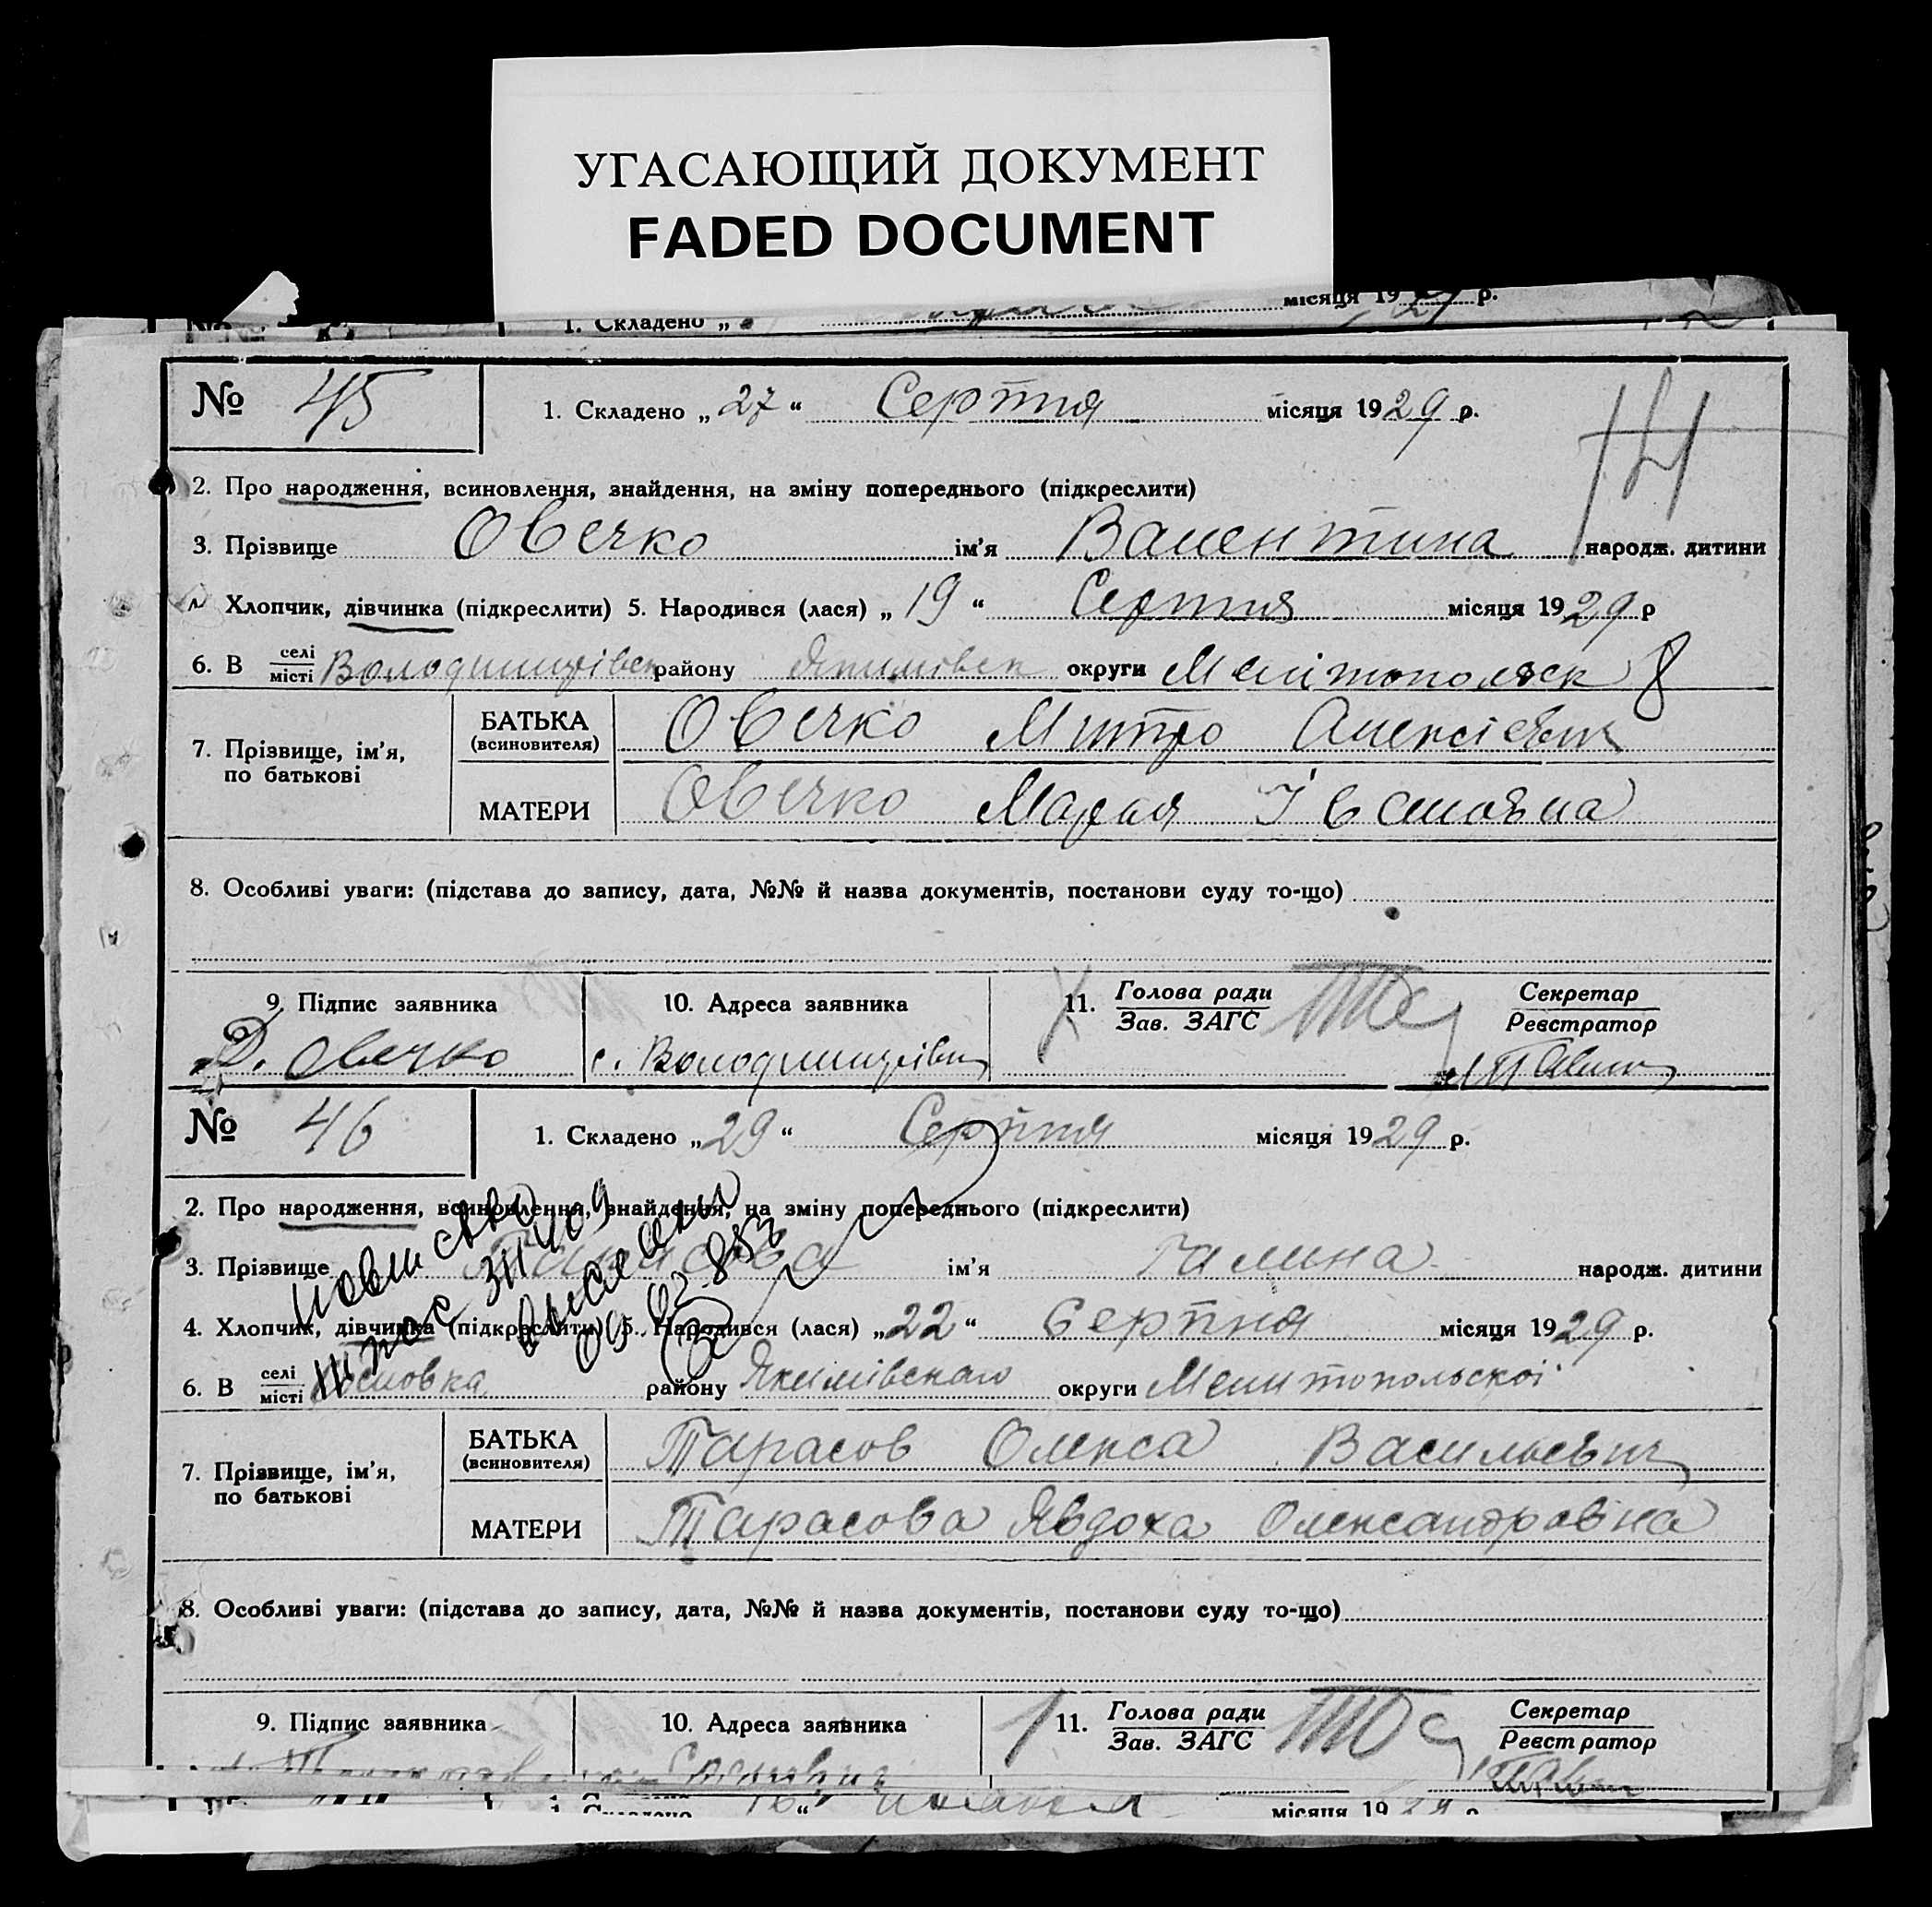 УГАСАЮЩИЙ ДОКУМЕНТ
FADED DOCUMENT
місяця 19 р.
1. Складено „
№ 45 1. Складено „ 27 “ Серпня місяця 1929 р.
2. Про народження, всиновлення, знайдення, на зміну попереднього (підкреслити)
3. Прізвище Овечко ім'я Валентина народж. дитини
Хлопчик, дівчинка (підкреслити) 5. Народився (лася) „ 19 “ Серпня місяця 1929 р
6. В селі місті Володимирівск району Якимівск округи Мелітопольск 8
7. Прізвище, ім'я, по батькові
БАТЬКА (всиновителя) Овечко Митро Алексієвич
МАТЕРИ Овечко Мария Івановна
8. Особливі уваги: (підстава до запису, дата, №№ й назва документів, постанови суду то-що)
9. Підпис заявника 10. Адреса заявника 11. Голова ради Зав. ЗАГС Секретар Реєстратор
Д. Овечко с. Володимирівк
№ 46 1. Складено „ 29 “ Серпня місяця 1929 р.
2. Про народження, всиновлення, знайдення, на зміну попереднього (підкреслити)
3. Прізвище ім'я Галина народж. дитини
4. Хлопчик, дівчинка (підкреслити) 5. Народився (лася) „ 22 “ Серпня місяця 1929 р.
6. В селі місті району Якимівского округи Мелитопольскої
7. Прізвище, ім'я, по батькові
БАТЬКА (всиновителя) Тарасов Олекса Васильевич
МАТЕРИ Тарасова Явдоха Олександровна
8. Особливі уваги: (підстава до запису, дата, №№ й назва документів, постанови суду то-що)
9. Підпис заявника 10. Адреса заявника 11. Голова ради Зав. ЗАГС Секретар Реєстратор
місяця 19